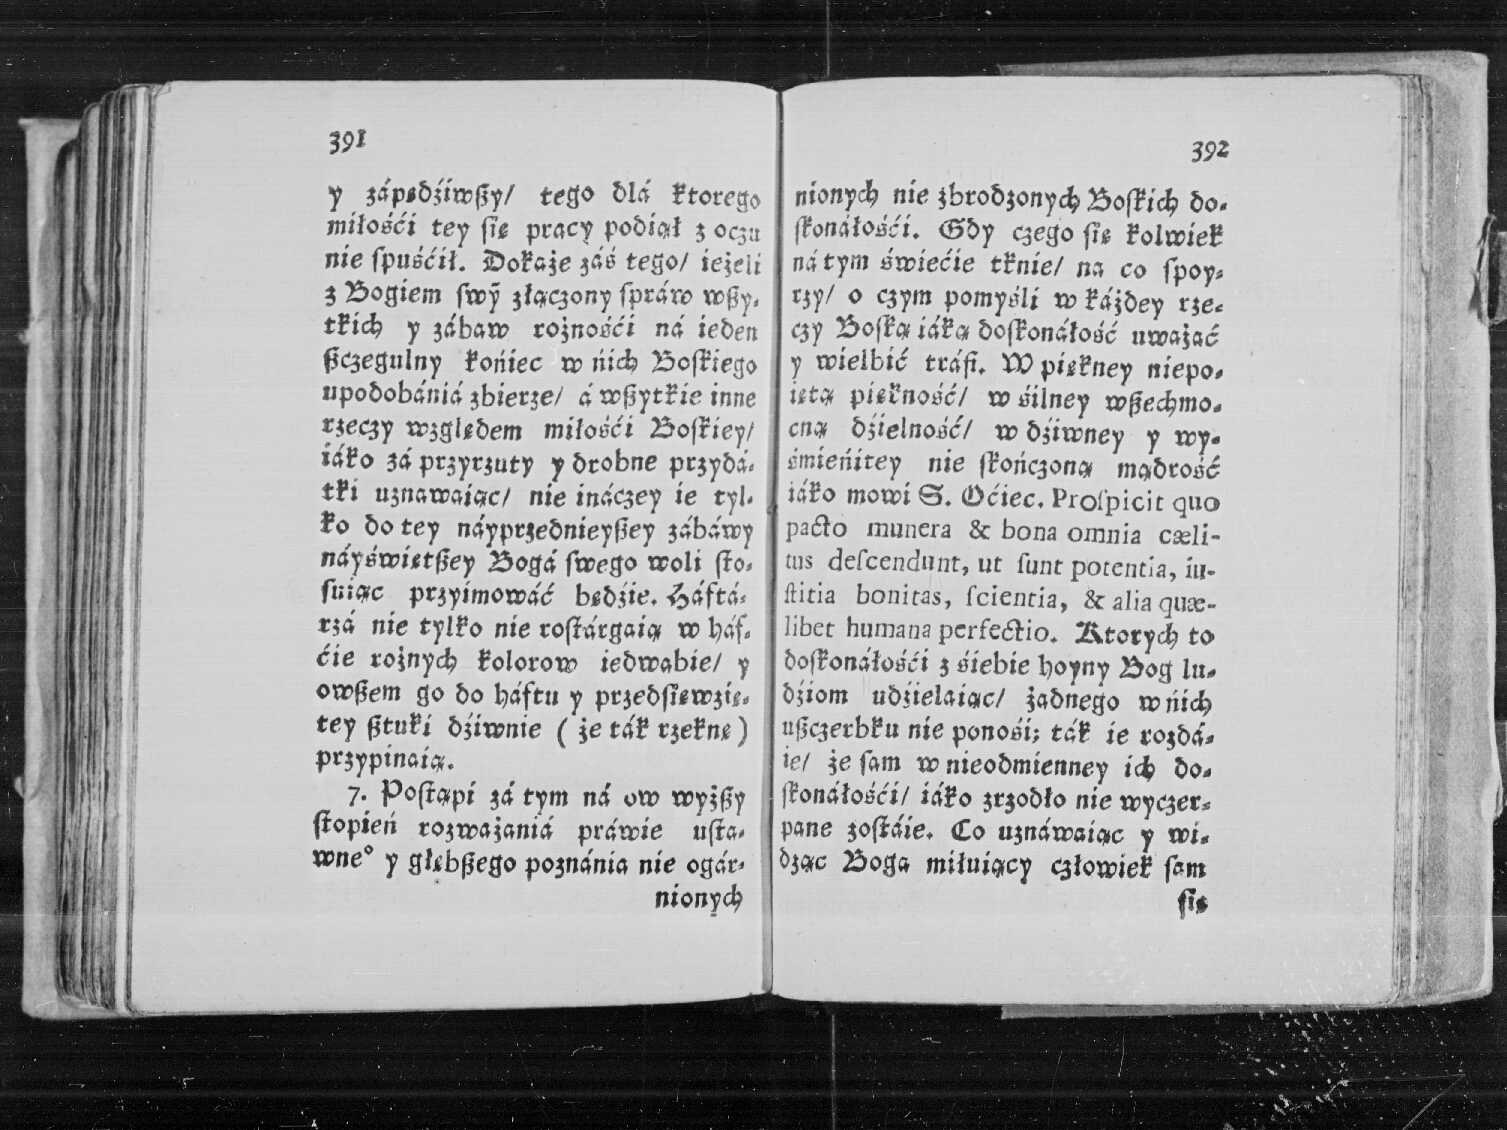 391
y zápędźiwßy/ tego dlá ktorego
miłośći tey się pracy podiął z oczu
nie spuśćił. Dokaże záś tego/ ieżeli
z Bogiem swỹ złączony spráw wßy-
tkich y zábaw rożnośći ná ieden
ßczegulny końiec w ńich Boskiego
upodobániá zbierze/ á wßytkie inne
rzeczy względem miłośći Boskiey/
iáko zá przyrzuty y drobne przydá-
tki uznawaiąc/ nie ináczey ie tyl-
ko do tey náyprzednieyßey zábáwy
náyświętßey Bogá swego woli sto-
suiąc przyimowáć będźie. Háftá-
rzá nie tylko nie rostárgaią w háf-
ćie rożnych kolorow iedwabie/ y
owßem go do háftu y przedsięwzię-
tey ßtuki dźiwnie ( że ták rzeknę )
przypinaią.
7. Postąpi zá tym ná ow wyżßy
stopień rozważaniá práwie usta-
wne° y głębßego poznánia nie ogár-
nionych
392
nionych nie zbrodzonych Boskich do-
skonáłośći. Gdy czego się kolwiek
ná tym świećie tknie/ na co spoy-
rzy/ o czym pomyśli w káżdey rze-
czy Boską iáką doskonáłość uważać
y wielbić tráfi. W piękney niepo-
iętą piękność/ w śilney wßechmo-
cną dźielność/ w dźiwney y wy-
śmieńitey nie skończoną mądrość
iáko mowi S. Oćiec. Proſpicit quo
pacto munera & bona omnia cæli-
tus deſcendunt, ut ſunt potentia, iu-
ſtitia bonitas, ſcientia, & alia quæ-
libet humana perfectio. Ktorych to
doskonáłośći z śiebie hoyny Bog lu-
dźiom udźielaiąc/ żadnego w ńich
ußczerbku nie ponośi; ták ie rozdá-
ie/ że sam w nieodmienney ich do-
skonáłośći/ iáko zrzodło nie wyczer-
pane zostáie. Co uznáwaiąc y wi-
dząc Boga miłuiący człowiek sam
się